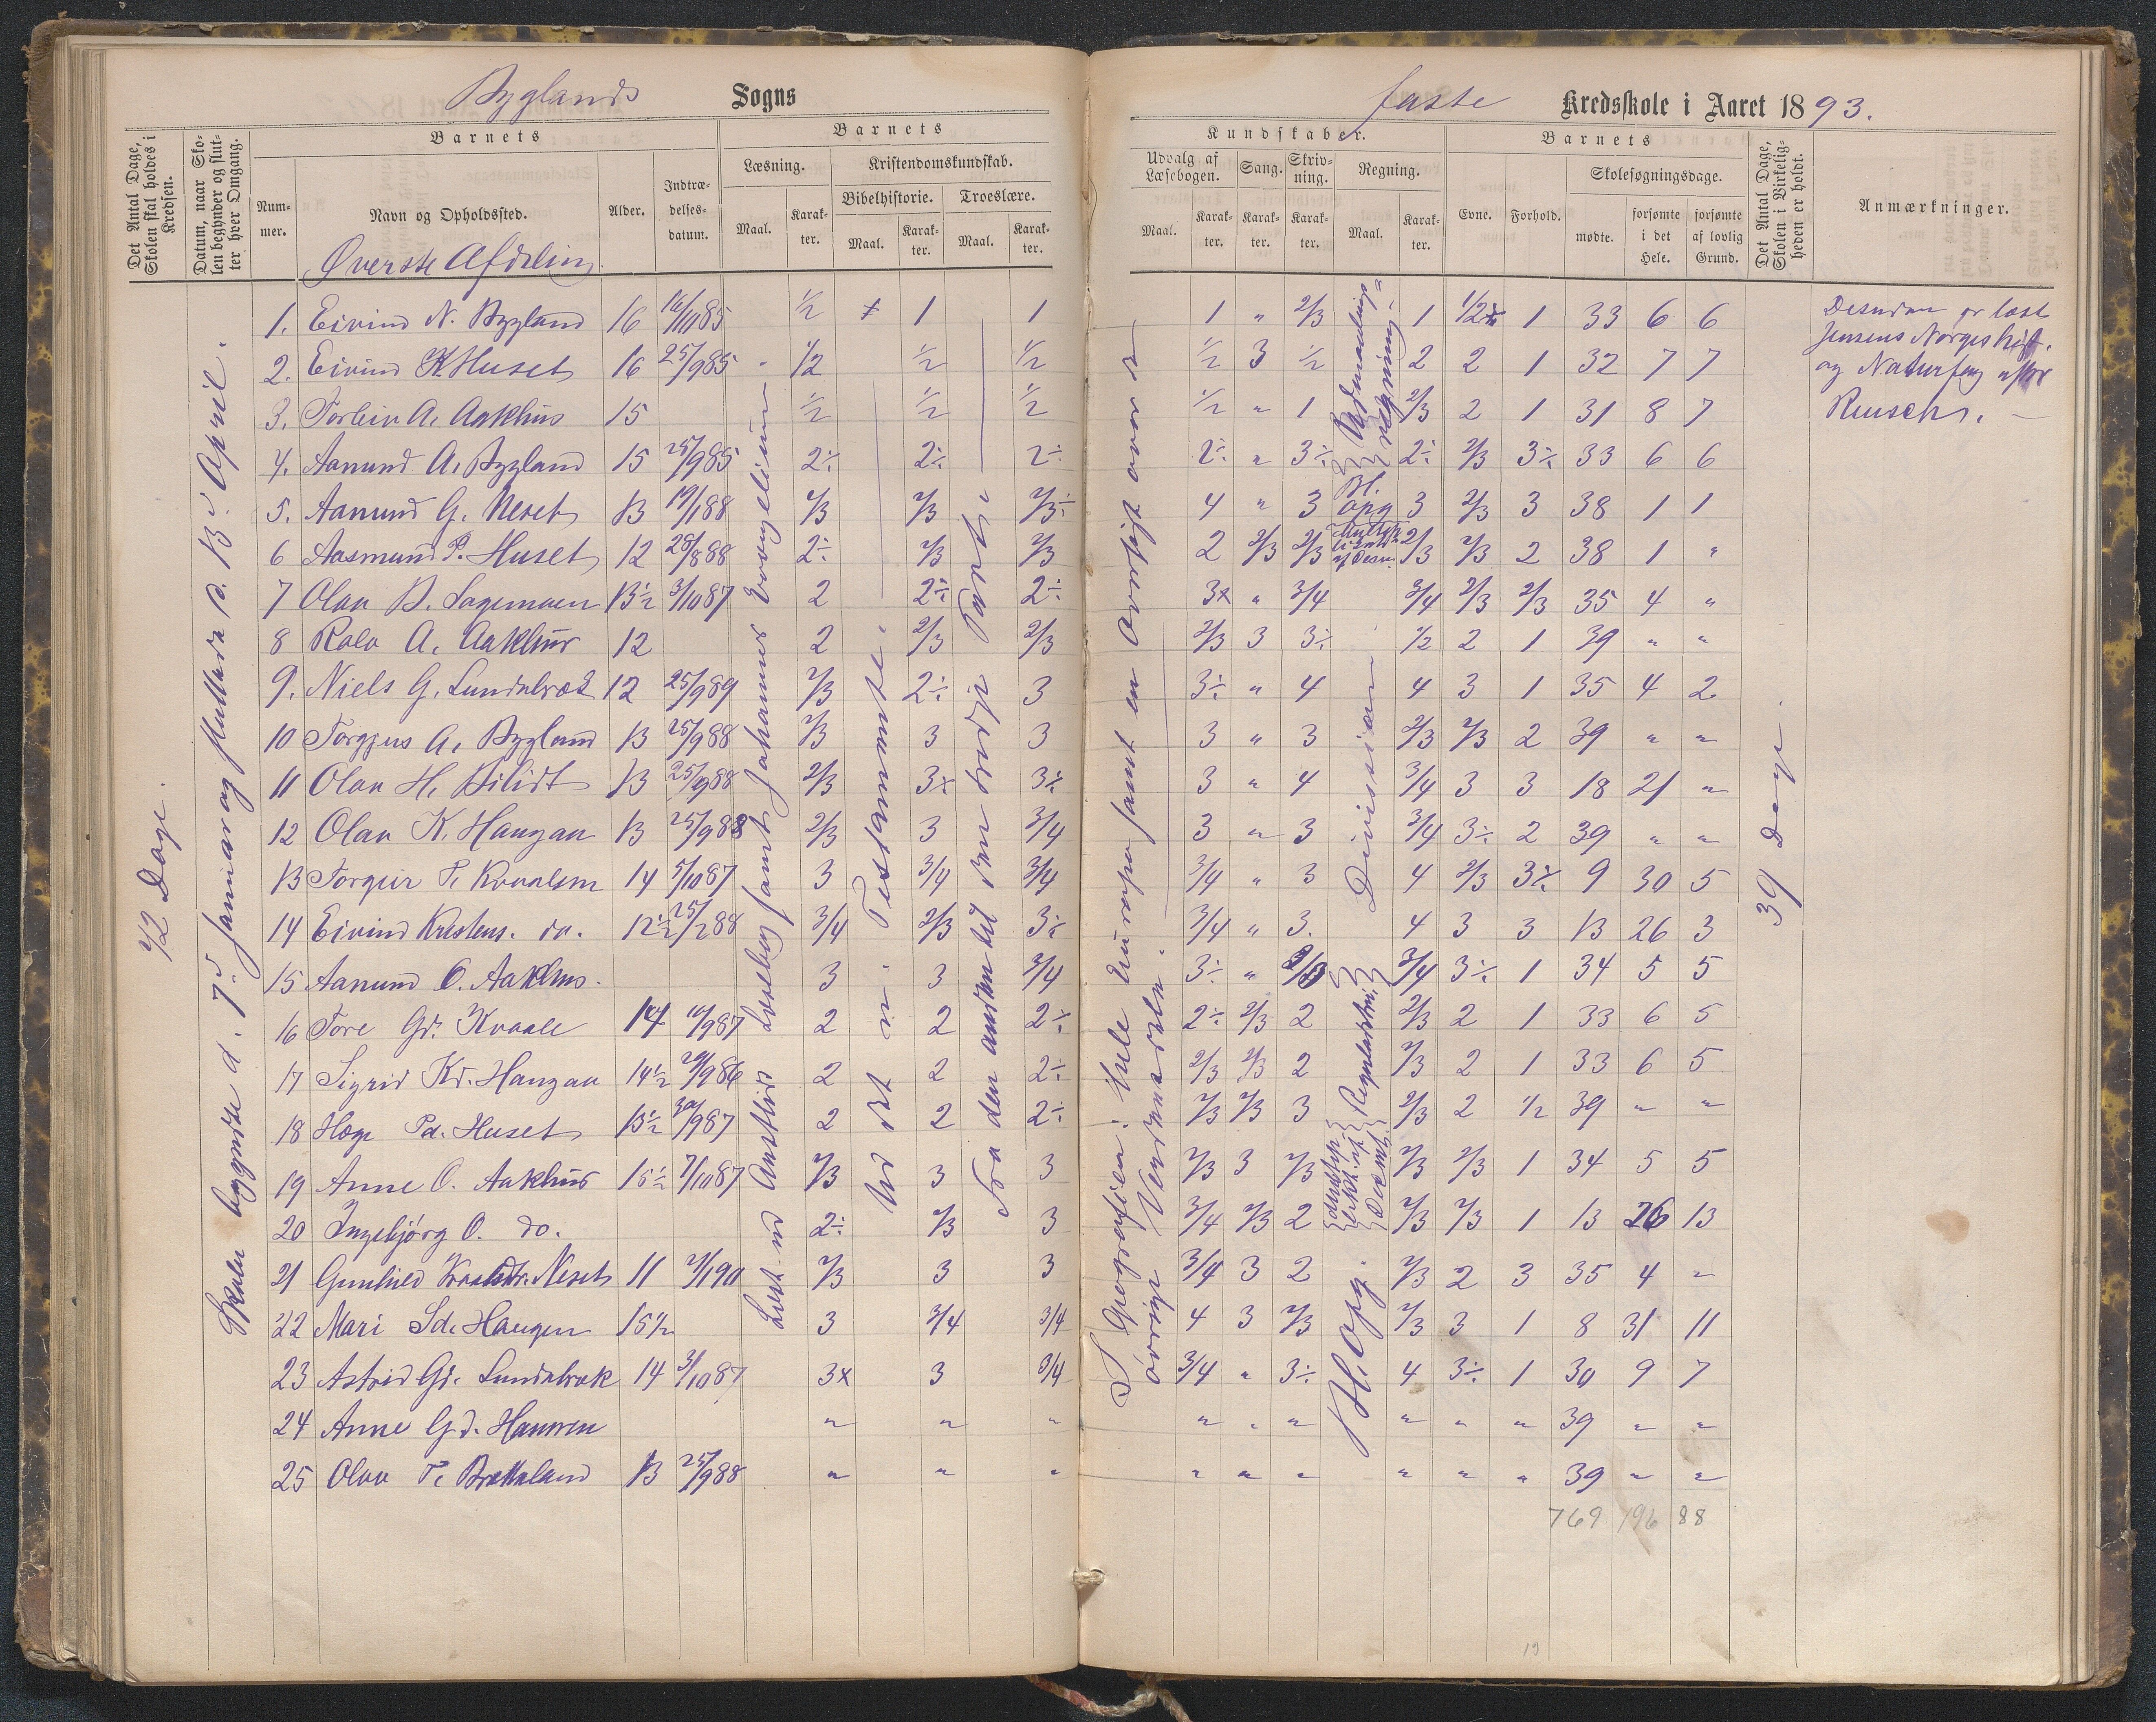 Byglands Sogns
faste Kredsskole i Aaret 1893.
Det Antal Dage, Skolen skal holdes i Kredsen.
Datum, naar Skolen begynder og slutter hver Omgang.
Barnets
Nummer.
Navn og Opholdssted.
Alder.
Indtrædelsesdatum.
Barnets
Læsning.
Maal.
Karakter.
Kristendomskundskab.
Bibelhistorie.
Maal.
Karakter.
Troeslære.
Maal.
Karakter.
Kundskaber.
Udvalg af Læsebogen.
Maal.
Karakter.
Sang.
Karakter.
Skrivning.
Karakter.
Regning.
Maal.
Karakter.
Barnets
Evne.
Forhold.
Skolesøgningsdage.
mødte.
forsømte i det Hele.
forsømte af lovlig Grund.
Det Antal Dage, Skolen i Virkeligheden er holdt.
Anmærkninger.
Øverste Afdeling.
1. Eivind N. Bygland 16 16/10 85 1/2 1 1 1 " 2/3 1 1/2 1 33 6 6
2. Eivind K. Huset 16 25/9 85 1/2 1/2 1/2 1/2 3 1/2 2 2 1 32 7 7
3. Torleiv A. Aakhus 15 1/2 1/2 1/2 1/2 " 1 2/3 2 1 31 8 7
4. Aanund A. Bygland 15 25/9 85 2÷ 2÷ 2÷ 2÷ " 3÷ 2÷ 2/3 3÷ 33 6 6
5. Aanund G. Neset 13 19/1 88 2/3 2/3 2/3÷ 4 " 3 3 2/3 3 38 1 1
6 Aasmund P. Huset 12 25/8 88 2÷ 2/3 2/3 2 2/3 2/3 2/3 2/3 2 38 1 "
7 Olav B. Sagemoen 13 1/2 3/10 87 2 2÷ 2÷ 3x " 3/4 3/4 2/3 2/3 35 4 "
8 Rolv A. Aakhus 12 2 2/3 2/3 2/3 3 3÷ 1/2 2 1 39 " "
9. Niels G. Lundebræk 12 25/9 89 2/3 2÷ 3 3÷ " 4 4 3 1 35 4 2
10 Torgjus A. Bygland 13 25/9 88 2/3 3 3 3 " 3 2/3 2/3 2 39 " "
11 Olav H. Bilidt 13 25/9 88 2/3 3x 3÷ 3 " 4 3/4 3 3 18 21 "
12 Olav K. Haugaa 13 25/9 88 2/3 3 3/4 3 " 3 3/4 3÷ 2 39 " "
13 Torgeir T. Kvaalsm 14 5/10 87 3 3/4 3/4 3/4 " 3 4 2/3 3÷ 9 30 5
14 Eivind Kristens. do. 12 1/2 25/2 88 3/4 2/3 3÷ 3/4 " 3. 4 3 3 13 26 3
15 Aanund O. Aakhus. 3 3 3/4 3÷ " 3/4 3÷ 1 34 5 5
16 Tore Gd. Kvaale 14 10/9 87 2 2 2÷ 2÷ 2/3 2 2/3 2 1 33 6 5
17 Sigrid Kd. Haugaa 14 1/2 29/9 86 2 2 2÷ 2/3 2/3 2 2/3 2 1 33 6 5
18 Hæge Pd. Huset 13 1/2 30/9 87 2 2 2÷ 2/3 2/3 3 2/3 2 1/2 39 " "
19 Anne O. Aakhus 15 1/2 7/10 87 2/3 3 3 2/3 3 2/3 2/3 2/3 1 34 5 5
20 Ingebjørg O. do. 2÷ 2/3 3 3/4 2/3 2 2/3 2/3 1 13 26 13
21 Gunhild Neset 11 7/1 90 2/3 3 3 3/4 3 2 2/3 2 3 35 4 "
22 Mari Sd. Haugen 15 1/2 3 3/4 3/4 4 3 2/3 2/3 3 1 8 31 11
23 Astrid Gd. Lundebræk 14 3/10 87 3x 3 3/4 3/4 " 3÷ 4 3÷ 1 30 9 7
24 Anne Gd. " " " " " " " " " 39 " "
25 Olav T. Brætteland 13 25/9 88 " " " " " " " " " 39 " "
769 196 88
42 Dage.
Skolen begyndte d. 7d. Januar og sluttede d. 13d. April.
Læst ud Anstlids Læsebog samt Johannes Evangelium
Ud det n. Testammente
Fra den anden til den tredje Part
I Geografien: hele Europa samt en Oversigt over de øvrige Verdensdele.
Opg.
Division
Bl. opg
Bl. opg.
39 Dage.
Desuden er læst
Jensens Norgeshist.
og Naturfag efter
Reusch.
19